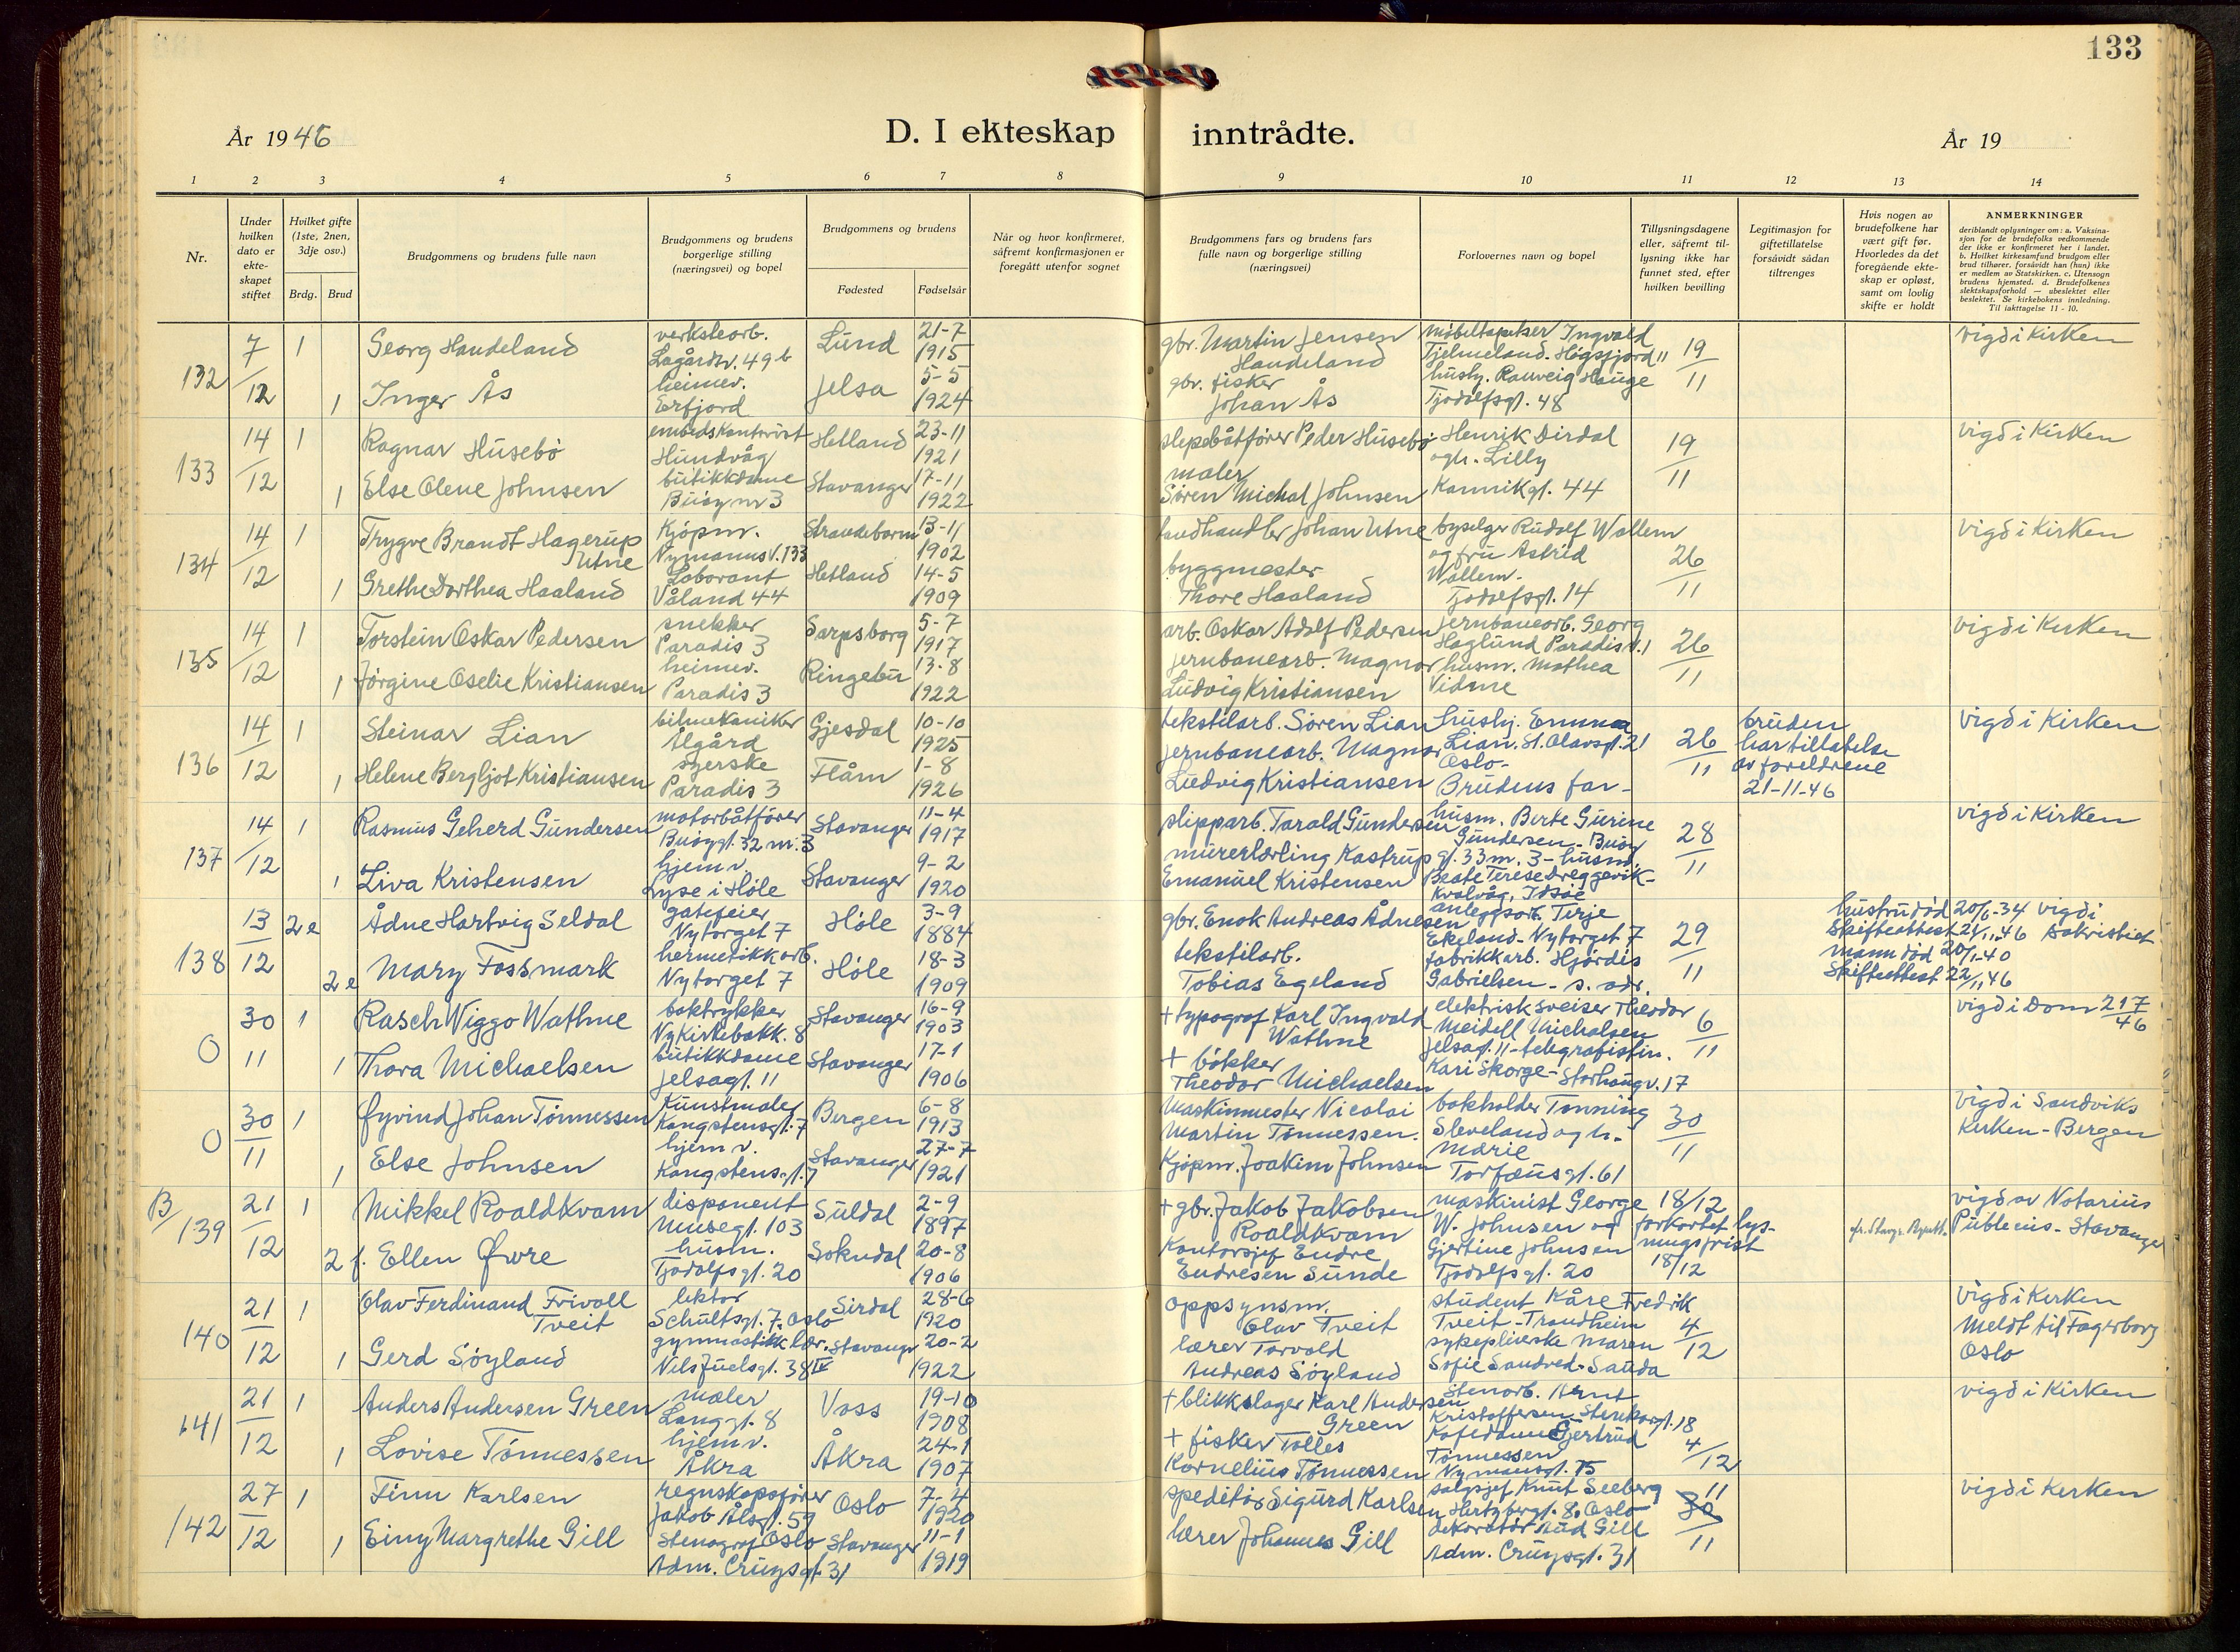 133
År 1946
D. I ekteskap inntrådte.
År 19
1 2 3 4 5 6 7 8 9 10 11 12 13 14
Nr.
Under hvilken dato er ekte-skapet stiftet
Hvilket gifte (1ste, 2nen, 3dje osv.)
Brdg. Brud
Brudgommens og brudens fulle navn
Brudgommens og brudens borgerlige stilling (næringsvei) og bopel
Brudgommens og brudens
Fødested Fødselsår
Når og hvor konfirmeret, såfremt konfirmasjonen er foregått utenfor sognet
Brudgommens fars og brudens fars fulle navn og borgerlige stilling (næringsvei)
Forlovernes navn og bopel
Tillysningsdagene eller, såfremt til-lysning ikke har funnet sted, efter hvilken bevilling
Legitimasjon for giftetillatelse forsåvidt sådan tiltrenges
Hvis nogen av brudefolkene har vært gift før. Hvorledes da det foregående ekte-skap er opløst, samt om lovlig skifte er holdt
ANMERKNINGER
deriblandt oplysninger om: a. Vaksina-sjon for de brudefolks vedkommende der ikke er konfirmeret her i landet. b. Hvilket kirkesamfund brudgom eller brud tilhører, forsåvidt han (hun) ikke er medlem av Statskirken. c. Utensogn brudens hjemsted. d. Brudefolkenes slektskapsforhold — ubeslektet eller beslektet. Se kirkebokens innledning. Til iakttagelse 11 - 10.
132 7/12 1 Georg Haudeland verkstearb. Lagårdsv. 49 b Lund 21-7 1915 gbr. Martin Jensen Haudeland møbeltapetser Ingvald Tjelmeland. Høgsfjord 19/11 vigd i kirken
1 Inger Ås heimev. Erfjord Jelsa 5-5 1924 gbr. fisker Johan Ås hushj. Rauveig Hauge Tjodolfsgt. 48
133 14/12 1 Ragnar Husebø embedskontorist Hundvåg Hetland 23-11 1921 slepebåtfører Peder Husebø Henrik Dirdal og h. Lilly Kannikgt. 44 19/11 vigd i kirken
1 Else Olene Johnsen butikkdame Buøy nr 3 Stavanger 17-11 1922 maler Søren Michal Johnsen
134 14/12 1 Trygve Brandt Hagerup Utne Kjøpm. Nymannsv. 133 Strandebarm 13-11 1902 landhandler Johan Utne byselger Rudolf Wallem og fru Astrid Wallem. Tjodolfsgt. 14 26/11 vigd i kirken
1 Grethe Dorthea Haaland Laborant Våland 44 Hetland 14-5 1909 byggmester Thore Haaland
135 14/12 1 Torstein Oskar Pedersen snekker Paradis 3 Sarpsborg 5-7 1917 arb. Oskar Adolf Pedersen jernbanearb. Georg Haglund Paradisv. 1 26/11 vigd i kirken
1 Jørgine Oselie Kristiansen heimev. Paradis 3 Ringebu 13-8 1922 jernbanearb. Magnar Ludvig Kristiansen husm. Mathea Vidme
136 14/12 1 Steinar Lian bilmekaniker Ålgård Gjesdal 10-10 1925 tekstilarb. Søren Lian hushj. Emma Lian. St. Olavsgt. 21 Oslo- 26/11 bruden har tillatelse av foreldrene 21-11-46 vigd i kirken
1 Helene Bergljot Kristiansen syerske Paradis 3 Flåm 1-8 1926 jernbanearb. Magnar Ludvig Kristiansen Brudens far-
137 14/12 1 Rasmus Geherd Gundersen motorbåtfører Buøygt. 32 nr. 3 Stavanger 11-4 1917 slipparb. Tarald Gundersen husm. Berte Gurine Gundersen - Buøy gt. 33 m. 3 - 28/11 vigd i kirken
1 Liva Kristensen hjemv. Lyse i Høle Stavanger 9-2 1920 murerlærling Kastrup Emanuel Kristensen husm. Beate Terese Dreggevik- Kvalvåg, Idsøe
138 13/12 2e Ådne Hartvig Seldal gatefeier Nytorget 7 Høle 3-9 1884 gbr. Enok Andreas Ådnesen anleggsarb. Terje Ekeland - Nytorget 7 29/11 hustru død 20/6-34 Skifteattest 21/11 46 vigd i Sakristiet
2e Mary Fossmark hermetikkarb. Nytorget 7 Høle 18-3 1909 tekstilarb. Tobias Egeland fabrikkarb. Hjørdis Gabrielsen - s. adr. mann død 20/1-40 Skifteattest 22/11 46
0 30/11 1 Rasch Wiggo Wathne boktrykker Ny Kirkebakk. 8 Stavanger 16-9 1903 + typograf Karl Ingvald Wathne elektrisk sveiser Theodor Meidell Michalsen Jelsagt. 11 - 6/11 vigd i Dom 217/46
1 Thora Michaelsen butikkdame Jelsagt. 11 Stavanger 17-1 1906 + bøkker Theodor Michaelsen telegrafistin. Kari Skorge - Storhaugv. 17
0 30/11 1 Øyvind Johan Tønnessen Kunstmaler Kongstensgt. 7 Bergen 6-8 1913 Maskinmester Nicolai Martin Tønnessen. bokholder Tønning Sleveland og h. Marie Torfæusgt. 61 30/11 vigd i Sandviks Kirken - Bergen
1 Else Johnsen hjemv. Kongstensgt. 7 Stavanger 27-7 1921 Kjøpm. Joakim Johnsen
B/139 21/12 1 Mikkel Roaldkvam disponent Musegt. 103 Suldal 2-9 1897 + gbr. Jakob Jakobsen Roaldkvam maskinist George W. Johnsen og Gjertine Johnsen Tjodolfsgt. 20 18/12 forkortet lysningsfrist 18/12 vigd av Notarius Publicus - Stavanger
2 f. Ellen Øvre husm. Tjodolfsgt. 20 Sokndal 20-8 1906 Kontorsjef Endre Endresen Sunde
140 21/12 1 Olav Ferdinand Frivoll Tveit lektor Schultsgt. 7. Oslo Sirdal 28-6 1920 oppsynsm. Olav Tveit student Kåre Fredrik Tveit - Trondheim 4/12 vigd i kirken Meldt til Fagerborg Oslo
1 Gerd Søyland gymnastikklær. Nils Juelsgt. 38 IV Stavanger 20-2 1922 lærer Torvald Andreas Søyland sykepleierske Maren Sofie Sandred - Sauda
141 21/12 1 Anders Andersen Green maler Langgt. 8 Voss 19-10 1908 + blikkslager Karl Andersen Green Stenarb. Arnt Kristoffersen Stenkargt. 18 4/12 vigd i kirken
1 Lovise Tønnessen hjemv. Åkra Åkra 24-1 1907 + fisker Tolles Kornelius Tønnessen Kafedame Gjertrud Tønnessen Nymansgt. 75
142 27/12 1 Finn Karlsen regnskapsfører Jakob Ålsgt. 59 Oslo Oslo 7-4 1920 speditør Sigurd Karlsen salgsjef Knut Seeberg Hertzbergt. 8. Oslo 11 30/11 vigd i kirken
1 Einy Margrethe Gill Stenograf Adm. Cruysgt. 31 Stavanger 11-1 1919 lærer Johannes Gill dekoratør Aud Gill Adm. Cruysgt. 31